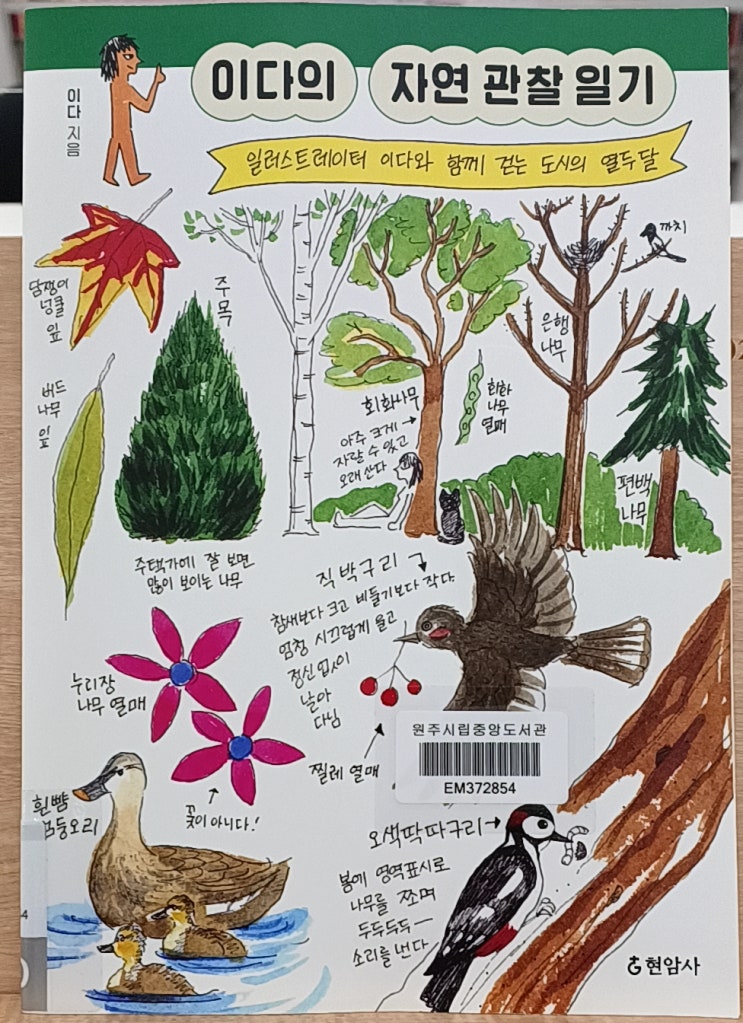 이다의 자연 관찰 일기
이다 지음
일러스트레이터 이다와 함께 걷는 도시의 열두 달
까치
담쟁이
넝쿨
잎
주목
은행
나무
버드
나무
잎
회화나무
아주 크게
자랄 수 있고
오래 산다
회화
나무
열매
편백
나무
주택가에 잘 보면
많이 보이는 나무
직박구리
참새보다 크고 비둘기보다 작다
엄청 시끄럽게 울고
정신없이
날아
다님
누리장
나무 열매
찔레 열매
원주시립중앙도서관
EM372854
꽃이 아니다!
흰뺨
둥오리
오색딱따구리
봄에 영역표시로
나무를 쪼며
두두두두―
소리를 낸다
4
현암사